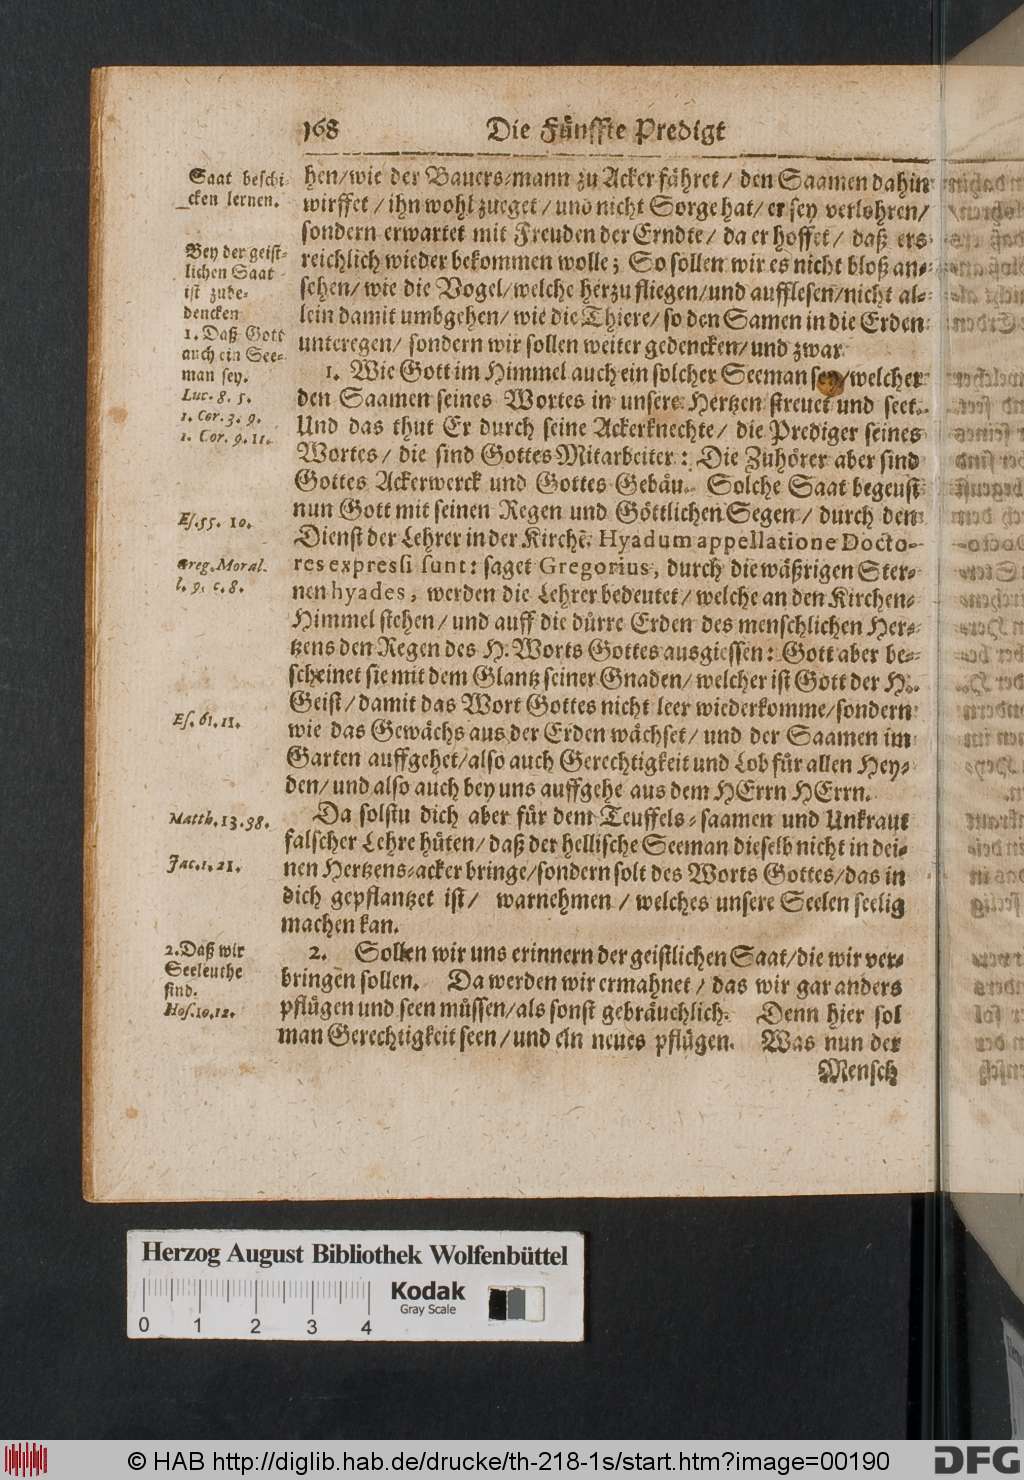 168
Die Fünffte Predigt
Saat beschi-
cken lernen.
Bey der geist-
lichen Saat
ist zube-
dencken
1. Daß Gott
auch ein See-
man sey.
Luc. 8. 5.
1. Cor. 3. 9.
1. Cor. 9. 11.
Es. 55. 10.
Greg. Moral.
l. 9. c. 8.
Es. 61. 11.
Matth. 13. 38.
Jac. 1. 21.
2. Daß wir
Seeleuthe
sind.
Hos. 10. 12.
hen/ wie der Bauers-mann zu Acker fähret/ den Saamen dahin
wirffet/ ihn wohl zueget/ und nicht Sorge hat/ er sey verlohren/
sondern erwartet mit Freuden der Erndte/ da er hoffet/ daß ers
reichlich wieder bekommen wolle; So sollen wir es nicht bloß an-
sehen/ wie die Vogel/ welche herzu fliegen/ und aufflesen/ nicht al-
lein damit umbgehen/ wie die Thiere/ so den Samen in die Erden
unteregen/ sondern wir sollen weiter gedencken/ und zwar
1. Wie Gott im Himmel auch ein solcher Seeman sey/ welcher
den Saamen seines Wortes in unsere Hertzen streuet und seet.
Und das thut Er durch seine Ackerknechte/ die Prediger seines
Wortes/ die sind Gottes Mitarbeiter: Die Zuhörer aber sind
Gottes Ackerwerck und Gottes Gebäu. Solche Saat begeust
nun Gott mit seinen Regen und Göttlichen Segen/ durch den
Dienst der Lehrer in der Kirche. Hyadum appellatione Docto-
res expressi sunt: saget Gregorius, durch die wäßrigen Ster-
nen hyades, werden die Lehrer bedeutet/ welche an den Kirchen-
Himmel stehen/ und auff die dürre Erden des menschlichen Her-
tzens den Regen des H. Worts Gottes ausgiessen: Gott aber be-
scheinet sie mit dem Glantz seiner Gnaden/ welcher ist Gott der H.
Geist/ damit das Wort Gottes nicht leer wiederkomme/ sondern
wie das Gewächs aus der Erden wächset/ und der Saamen im
Garten auffgehet/ also auch Gerechtigkeit und Lob für allen Hey-
den/ und also auch bey uns auffgehe aus dem HErrn HErrn.
Da solstu dich aber für dem Teuffels-saamen und Unkraut
falscher Lehre hüten/ daß der hellische Seeman dieselb nicht in dei-
nen Hertzens-acker bringe/ sondern solt des Worts Gottes/ das in
dich gepflantzet ist/ warnehmen/ welches unsere Seelen seelig
machen kan.
2. Sollen wir uns erinnern der geistlichen Saat/ die wir ver-
bringen sollen. Da werden wir ermahnet/ das wir gar anders
pflügen und seen müssen/ als sonst gebräuchlich. Denn hier sol
man Gerechtigkeit seen/ und ein neues pflügen. Was nun der
Mensch
Herzog August Bibliothek Wolfenbüttel
Kodak
Gray Scale
0 1 2 3 4
© HAB http://diglib.hab.de/drucke/th-218-1s/start.htm?image=00190
DFG